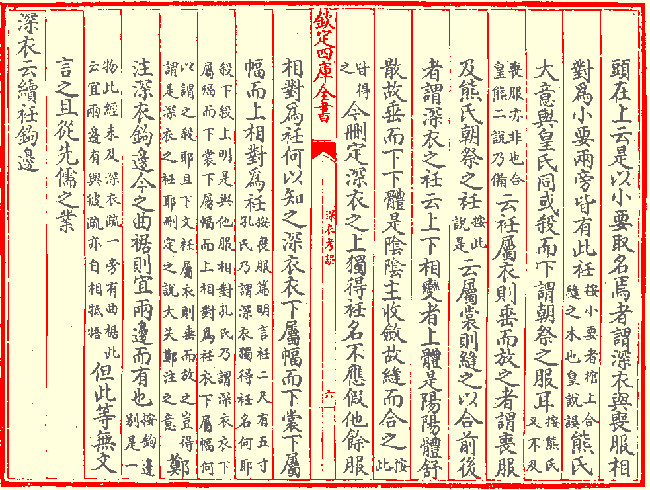 頭在上云是以小要取名焉者謂深衣與喪服相
對為小要兩旁皆有此衽按小要者棺上合縫之木也皇説誤熊氏
大意與皇氏同或殺而下謂朝祭之服耳按熊氏又不及
喪服亦非也合皇熊二説乃備云衽屬衣則垂而放之者謂喪服
及熊氏朝祭之衽按此説是云屬裳則縫之以合前後
者謂深衣之衽云上下相變者上體是陽陽體舒
散故垂而下下體是陰陰主收斂故縫而合之按此
得之今刪定深衣之上獨得衽名不應假他餘服
欽定四庫全書
深衣考誤
六
相對為衽何以知之深衣衣下屬幅而下裳下屬
幅而上相對為衽按喪服篇明言衽二尺有五寸孔氏乃謂深衣獨得衽名何耶
殺下殺上明是與他服相對孔氏乃謂深衣衣下屬幅而下裳下屬幅而上相對為衽衣下屬幅何
以謂之殺耶且下文衽屬衣則垂而放之豈得謂是深衣之衽耶刪定之説大失鄭注之意鄭
注深衣鈎邊今之曲裾則宜兩邊而有也按鈎邊别是一
物此經未及深衣疏一旁有曲裾此云宜兩邊有與彼疏亦自相牴牾但此等無文
言之且從先儒之業
深衣云續衽鈎邊